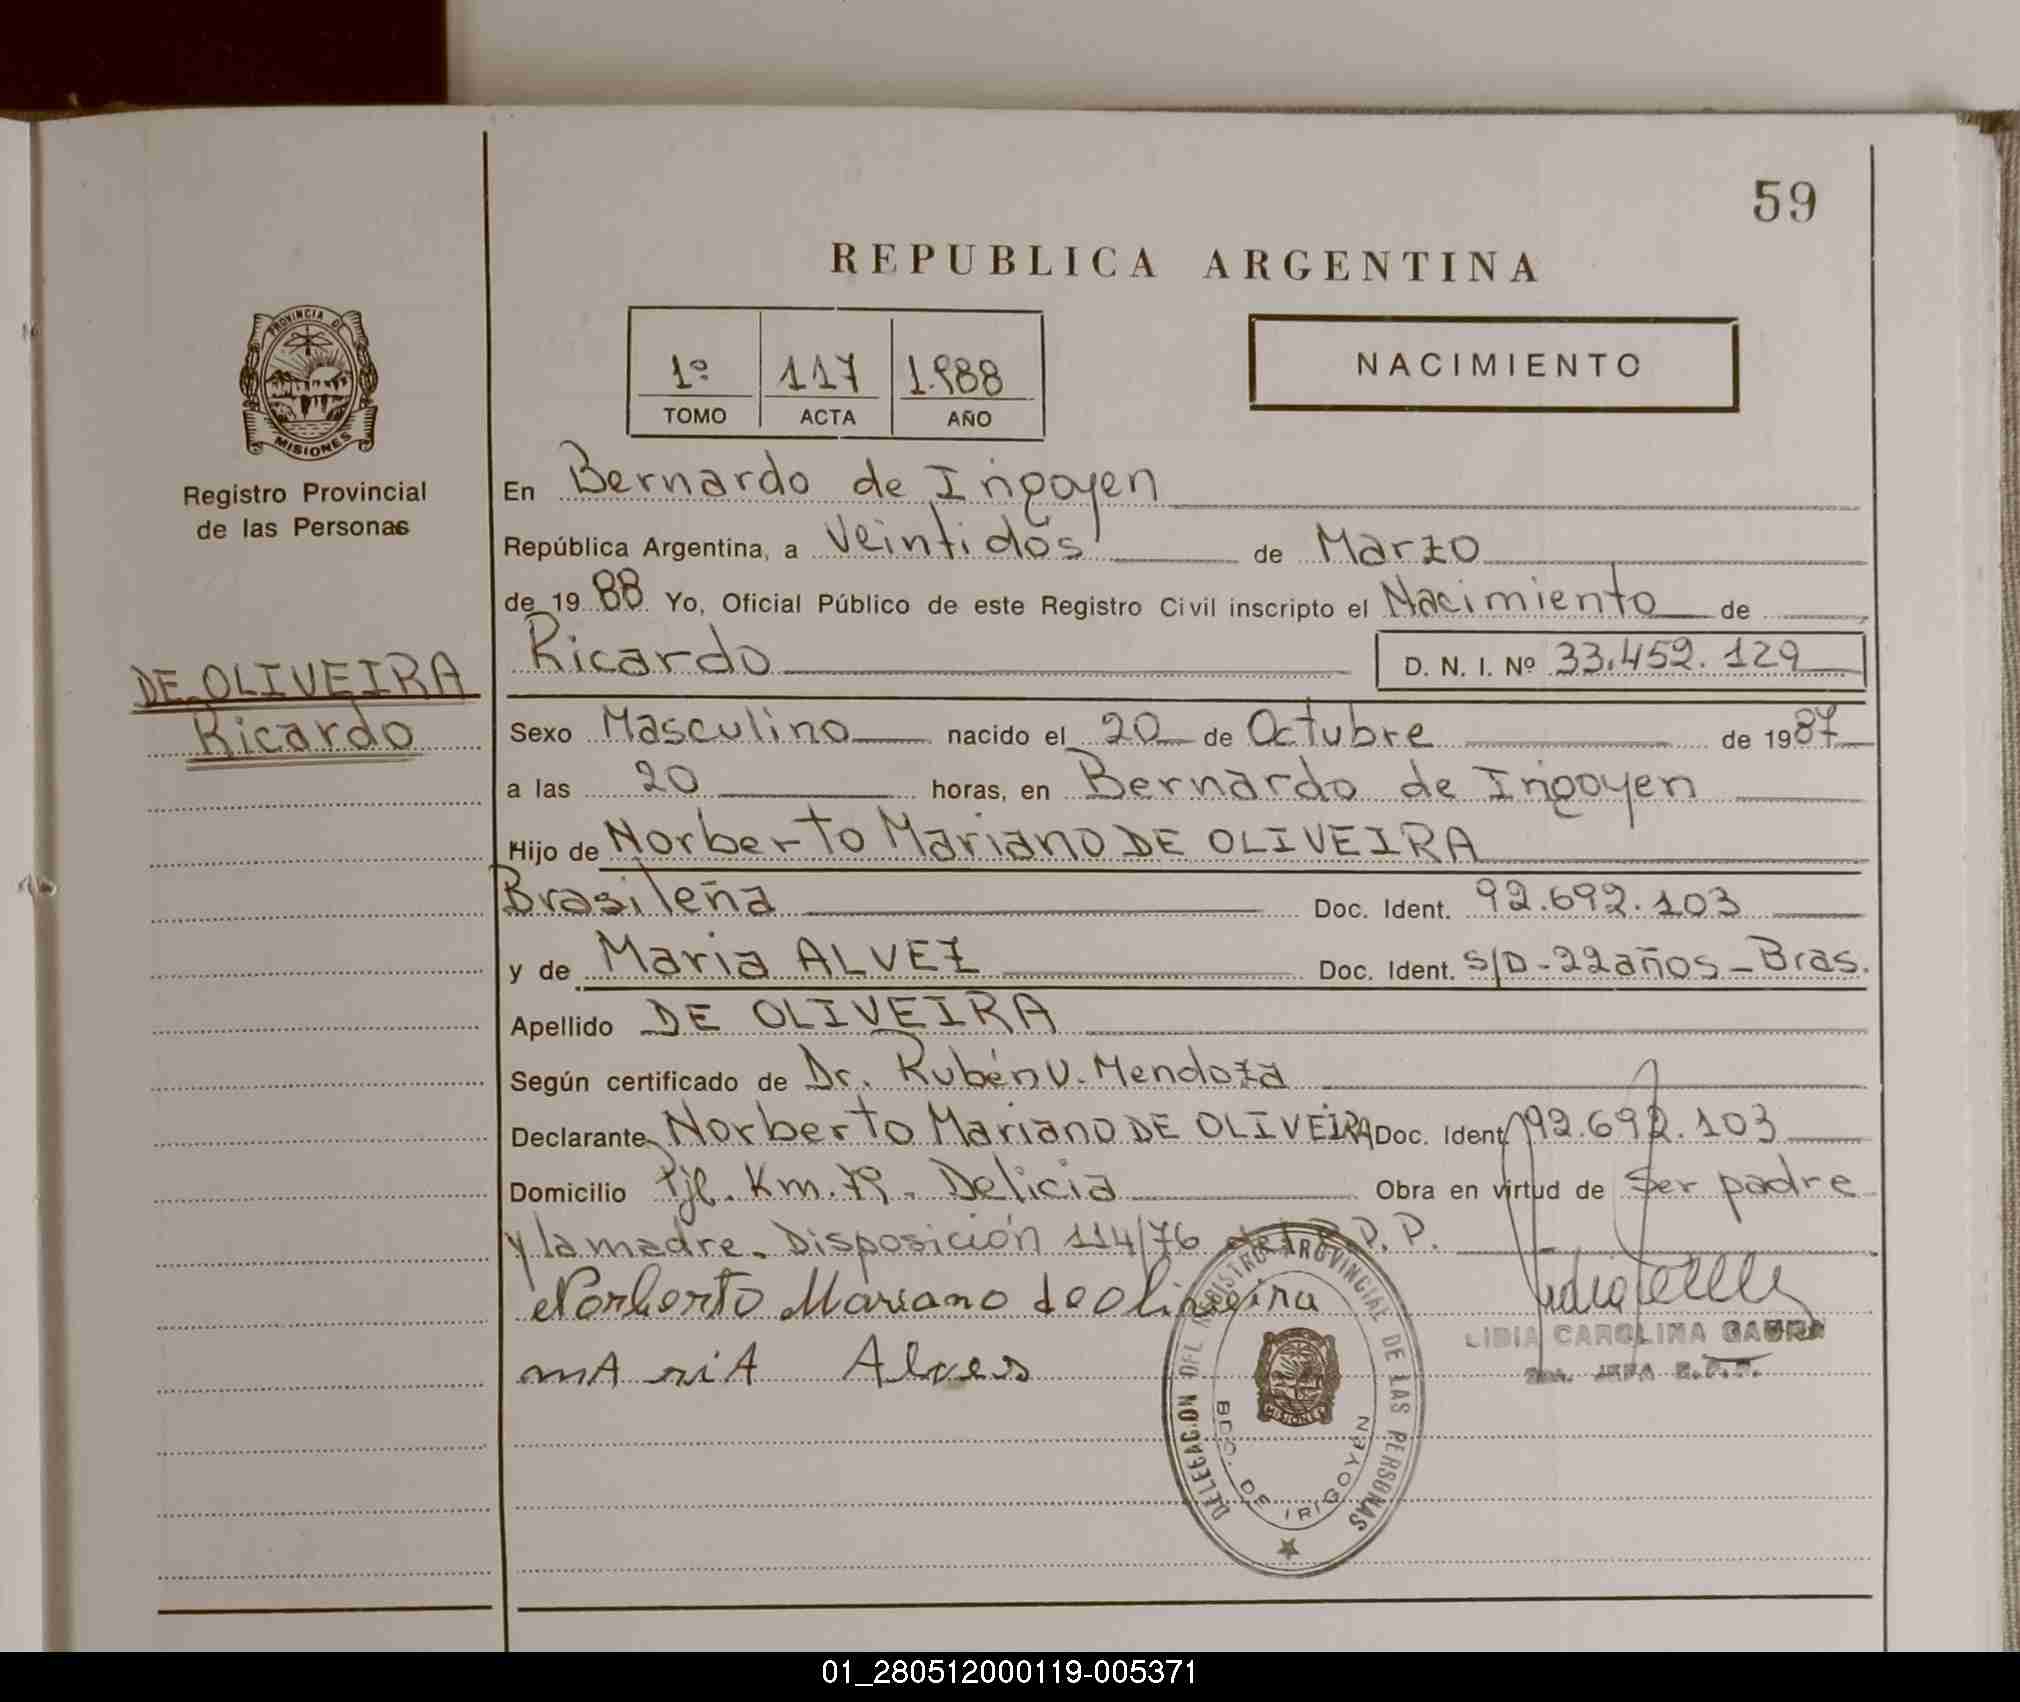 59
REPUBLICA ARGENTINA
1º 117 1.988
TOMO ACTA AÑO
NACIMIENTO
PROVINCIA DE
MISIONES
Registro Provincial
de las Personas
DE OLIVEIRA
Ricardo
En Bernardo de Irigoyen
República Argentina, a Veintidós de Marzo
de 19 88 Yo, Oficial Público de este Registro Civil inscripto el Nacimiento de
Ricardo D. N. I. Nº 33.452.129
Sexo Masculino nacido el 20 de Octubre de 19 87
a las 20 horas, en Bernardo de Irigoyen
Hijo de Norberto Mariano DE OLIVEIRA
Brasileña Doc. Ident. 92.692.103
y de Maria ALVEZ Doc. Ident. S/D-22 años-Bras.
Apellido DE OLIVEIRA
Según certificado de Dr. Rubén V. Mendoza
Declarante Norberto Mariano DE OLIVEIRA Doc. Ident. 92.692.103
Domicilio Pje. Km. 79. Delicia Obra en virtud de Ser padre
y la madre. Disposición 114/76 del R.P.P.
Norberto Mariano de olivieira
mAriA Alves
LIDIA CAROLINA
DELEGACION DEL REGISTRO PROVINCIAL DE LAS PERSONAS
BDO. DE IRIGOYEN
MISIONES
01_280512000119-005371